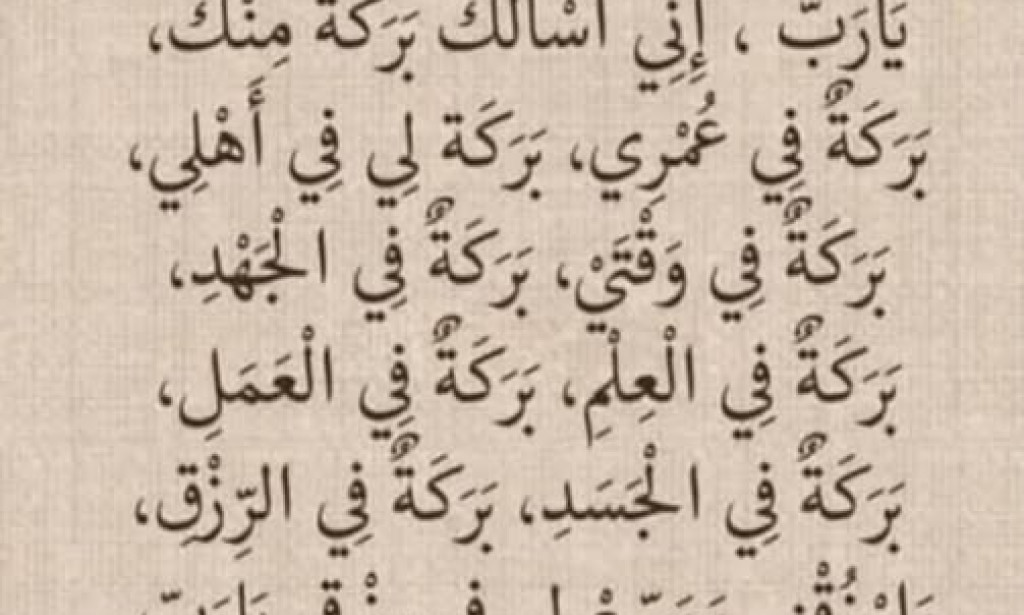 يَارَبّ ، إِنِّي أسْأَلُكَ بَرَكَةً مِنْكَ،
بَرَكَةٌ فِي عُمْرِي، بَرَكَة لِي فِي أَهْلِي،
بَرَكَةٌ فِي وَقْتَيْ، بَرَكَةٌ فِي الْجَهْدِ،
بَرَكَةٌ فِي الْعِلْمِ، بَرَكَةٌ فِي الْعَمَلِ،
بَرَكَةٌ فِي الْجَسَدِ، بَرَكَةٌ فِي الرِّزْقِ،